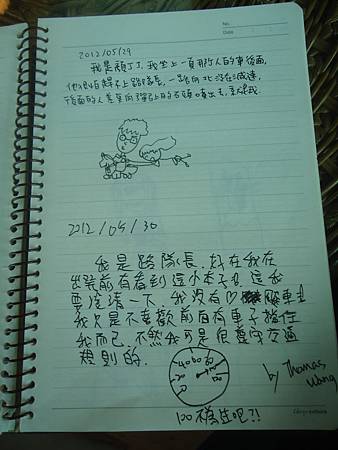 No.
Date
2012/05/29
我是頑丁丁,我坐上一頁那个人的車後面,
他很怕趕不上路隊長,一路向北沒在減速,
後面的人差
2012/05/30
我是路隊長,好在我在
出發前有看到這小本子,這我
要澄清一下,我沒有♡飆車!
我只是不喜歡前面有車子擋住
我而已,不然我可是很遵守交通
規則的.
by Thomas
Wang
100碼佳吧?!